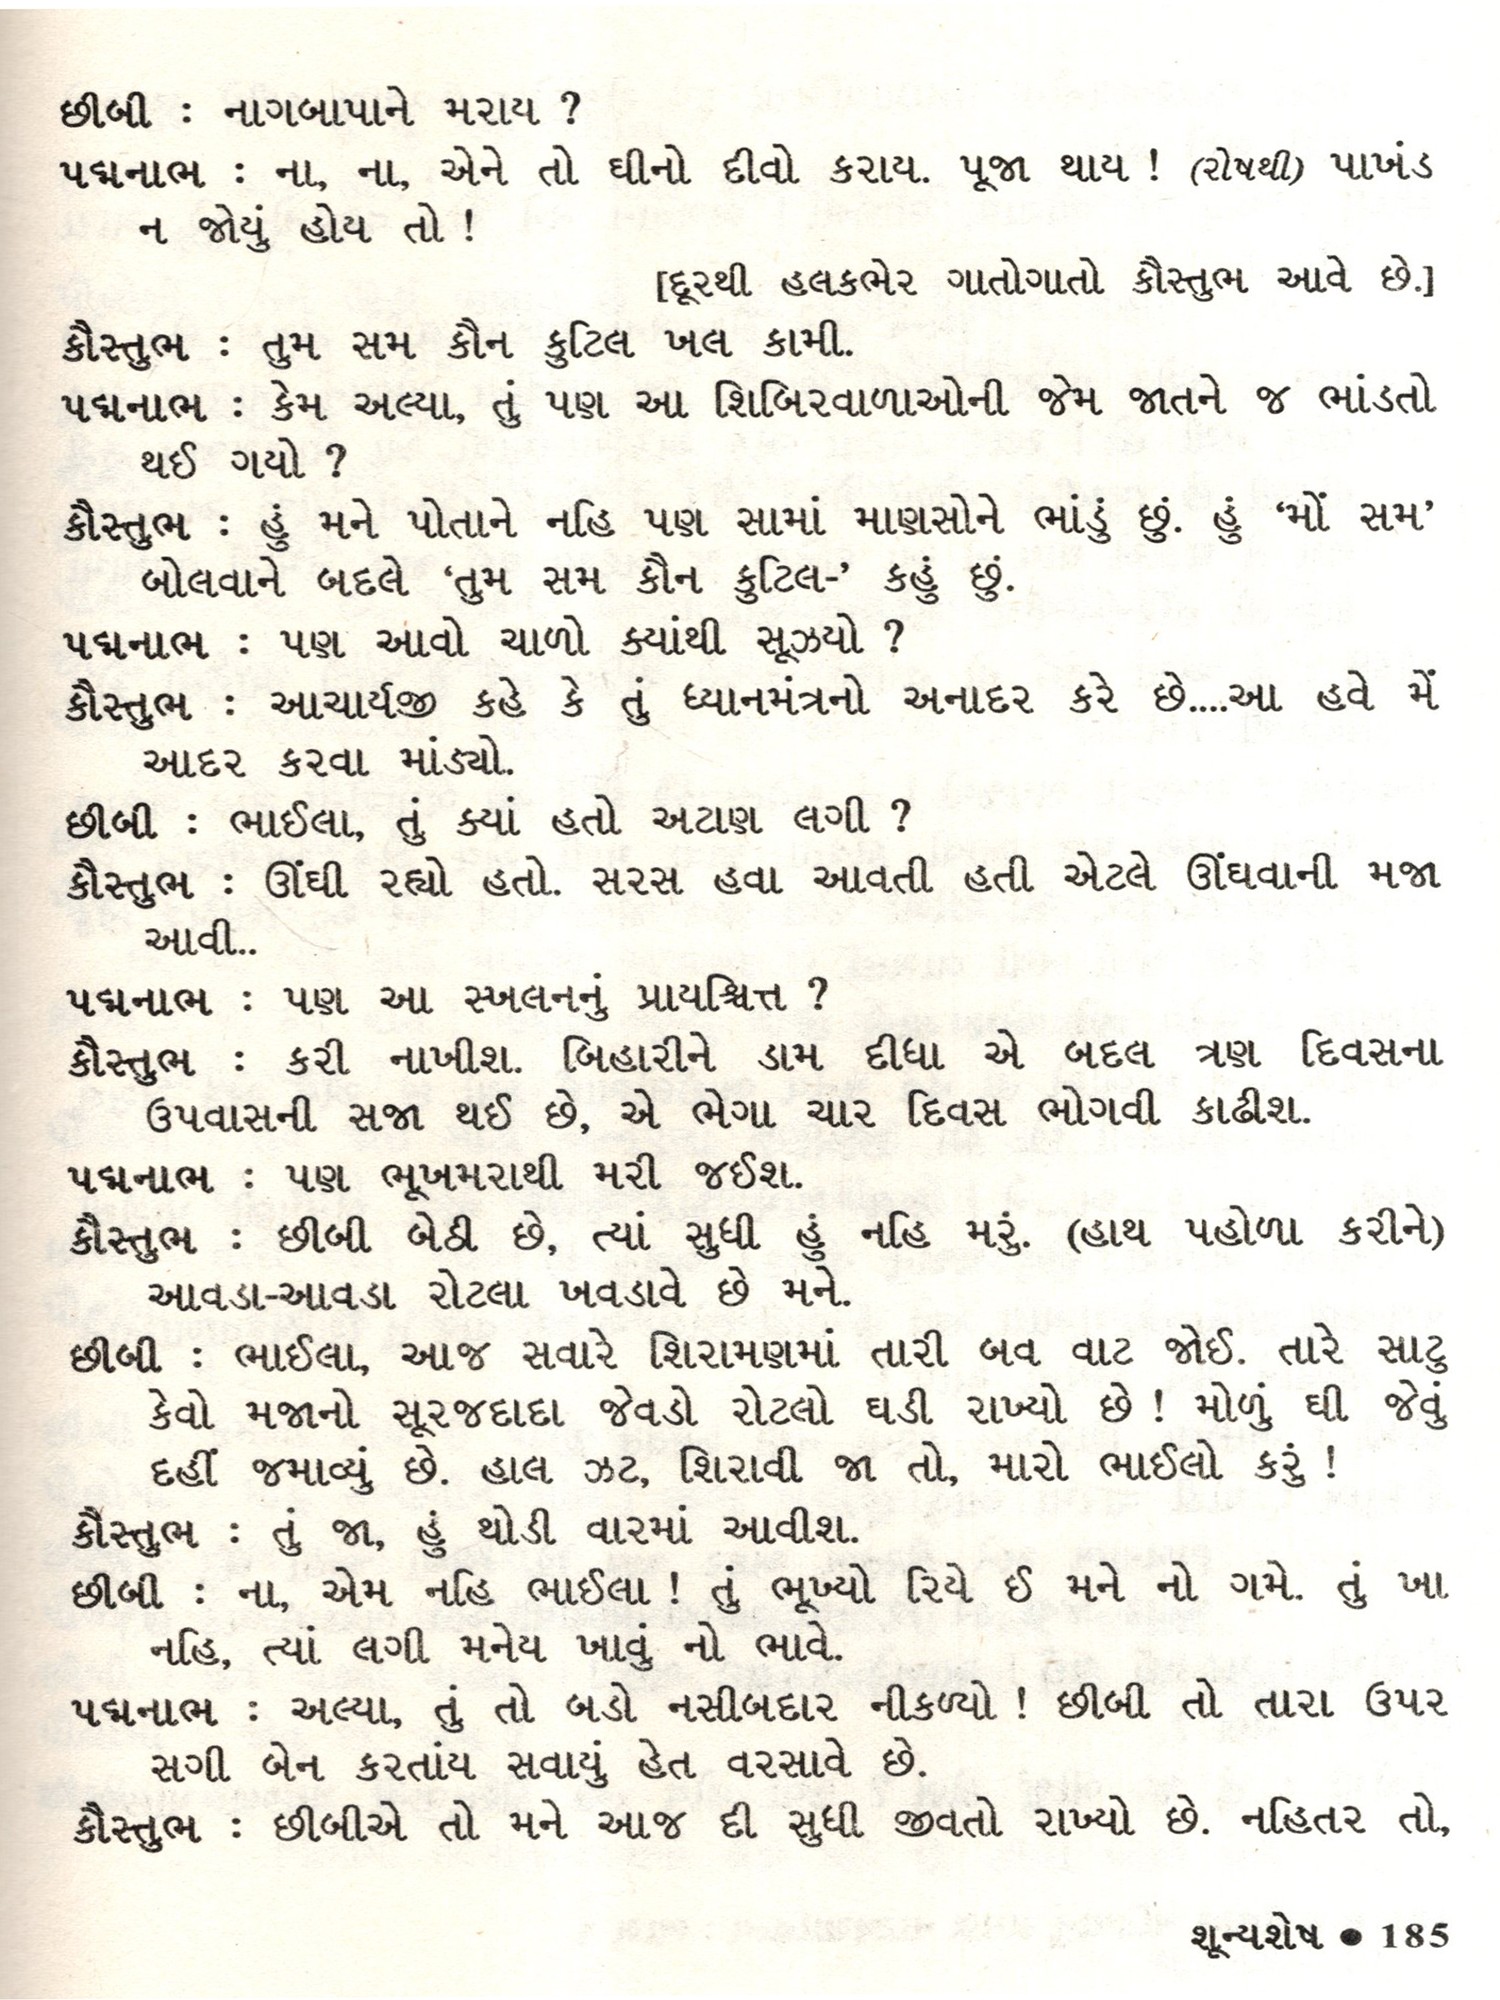 છીબી : નાગબાપાને મરાય ?
પદ્મનાભ : ના, ના, એને તો ઘીનો દીવો કરાય. પૂજા થાય ! (રોષથી) પાખંડ
ન જોયું હોય તો !
[દૂરથી હલકભેર ગાતોગાતો કૌસ્તુભ આવે છે.]
કૌસ્તુભ : તુમ સમ કૌન કુટિલ ખલ કામી.
પદ્મનાભ : કેમ અલ્યા, તું પણ આ શિબિરવાળાઓની જેમ જાતને જ ભાંડતો
થઈ ગયો ?
કૌસ્તુભ : હું મને પોતાને નહિ પણ સામાં માણસોને ભાંડું છું. હું ‘મોં સમ’
બોલવાને બદલે ‘તુમ સમ કૌન કુટિલ-’ કહું છું.
પદ્મનાભ : પણ આવો ચાળો ક્યાંથી સૂઝયો ?
કૌસ્તુભ : આચાર્યજી કહે કે તું ધ્યાનમંત્રનો અનાદર કરે છે....આ હવે મેં
આદર કરવા માંડ્યો.
છીબી : ભાઈલા, તું ક્યાં હતો અટાણ લગી ?
કૌસ્તુભ : ઊંઘી રહ્યો હતો. સરસ હવા આવતી હતી એટલે ઊંઘવાની મજા
આવી..
પદ્મનાભ : પણ આ સ્ખલનનું પ્રાયશ્ચિત્ત ?
કૌસ્તુભ : કરી નાખીશ. બિહારીને ડામ દીધા એ બદલ ત્રણ દિવસના
ઉપવાસની સજા થઈ છે, એ ભેગા ચાર દિવસ ભોગવી કાઢીશ.
પદ્મનાભ : પણ ભૂખમરાથી મરી જઈશ.
કૌસ્તુભ : છીબી બેઠી છે, ત્યાં સુધી હું નહિ મરું. (હાથ પહોળા કરીને)
આવડા-આવડા રોટલા ખવડાવે છે મને.
છીબી : ભાઈલા, આજ સવારે શિરામણમાં તારી બવ વાટ જોઈ. તારે સાટુ
કેવો મજાનો સૂરજદાદા જેવડો રોટલો ઘડી રાખ્યો છે ! મોળું ઘી જેવું
દહીં જમાવ્યું છે. હાલ ઝટ, શિરાવી જા તો, મારો ભાઈલો કરું !
કૌસ્તુભ : તું જા, હું થોડી વારમાં આવીશ.
છીબી : ના, એમ નહિ ભાઈલા ! તું ભૂખ્યો રિયે ઈ મને નો ગમે. તું ખા
નહિ, ત્યાં લગી મનેય ખાવું નો ભાવે.
પદ્મનાભ : અલ્યા, તું તો બડો નસીબદાર નીકળ્યો ! છીબી તો તારા ઉપર
સગી બેન કરતાંય સવાયું હેત વરસાવે છે.
કૌસ્તુભ : છીબીએ તો મને આજ દી સુધી જીવતો રાખ્યો છે. નહિતર તો,
શૂન્યશેષ ● 185